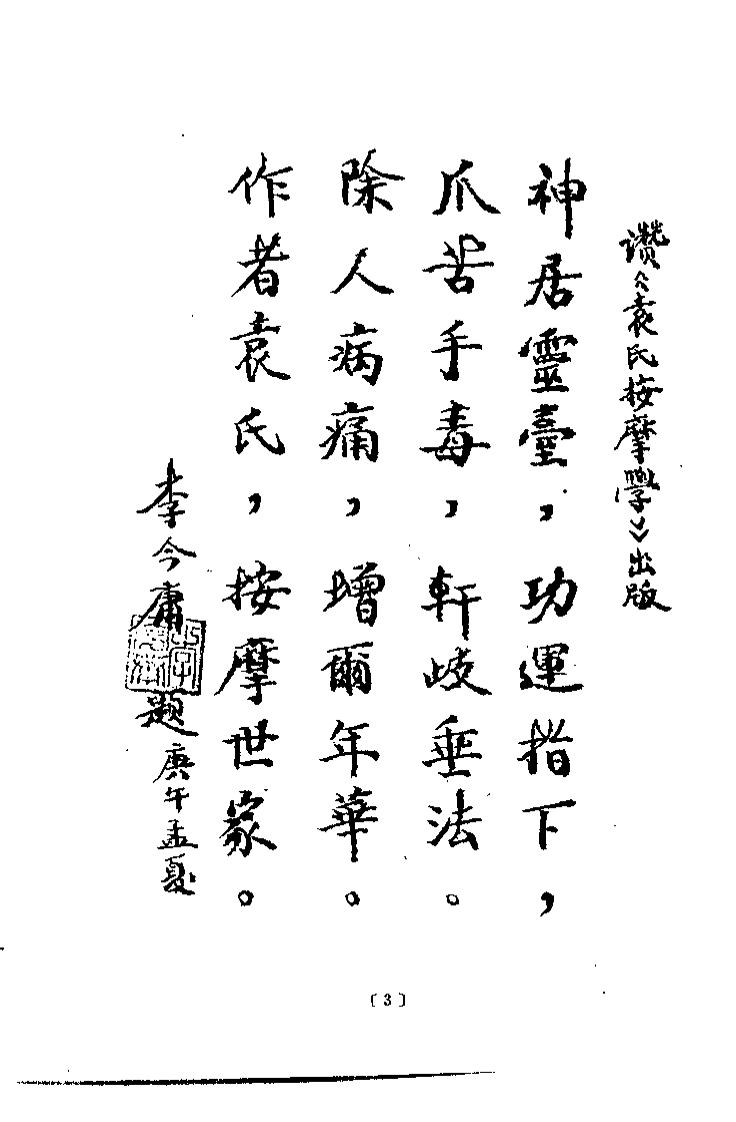 讚《袁氏按摩學》出版
神居靈臺，功運指下，
爪苦手毒，軒歧垂法。
除人病痛，增爾年華。
作者袁氏，按摩世家。
李今庸題庚午孟夏
〔3〕